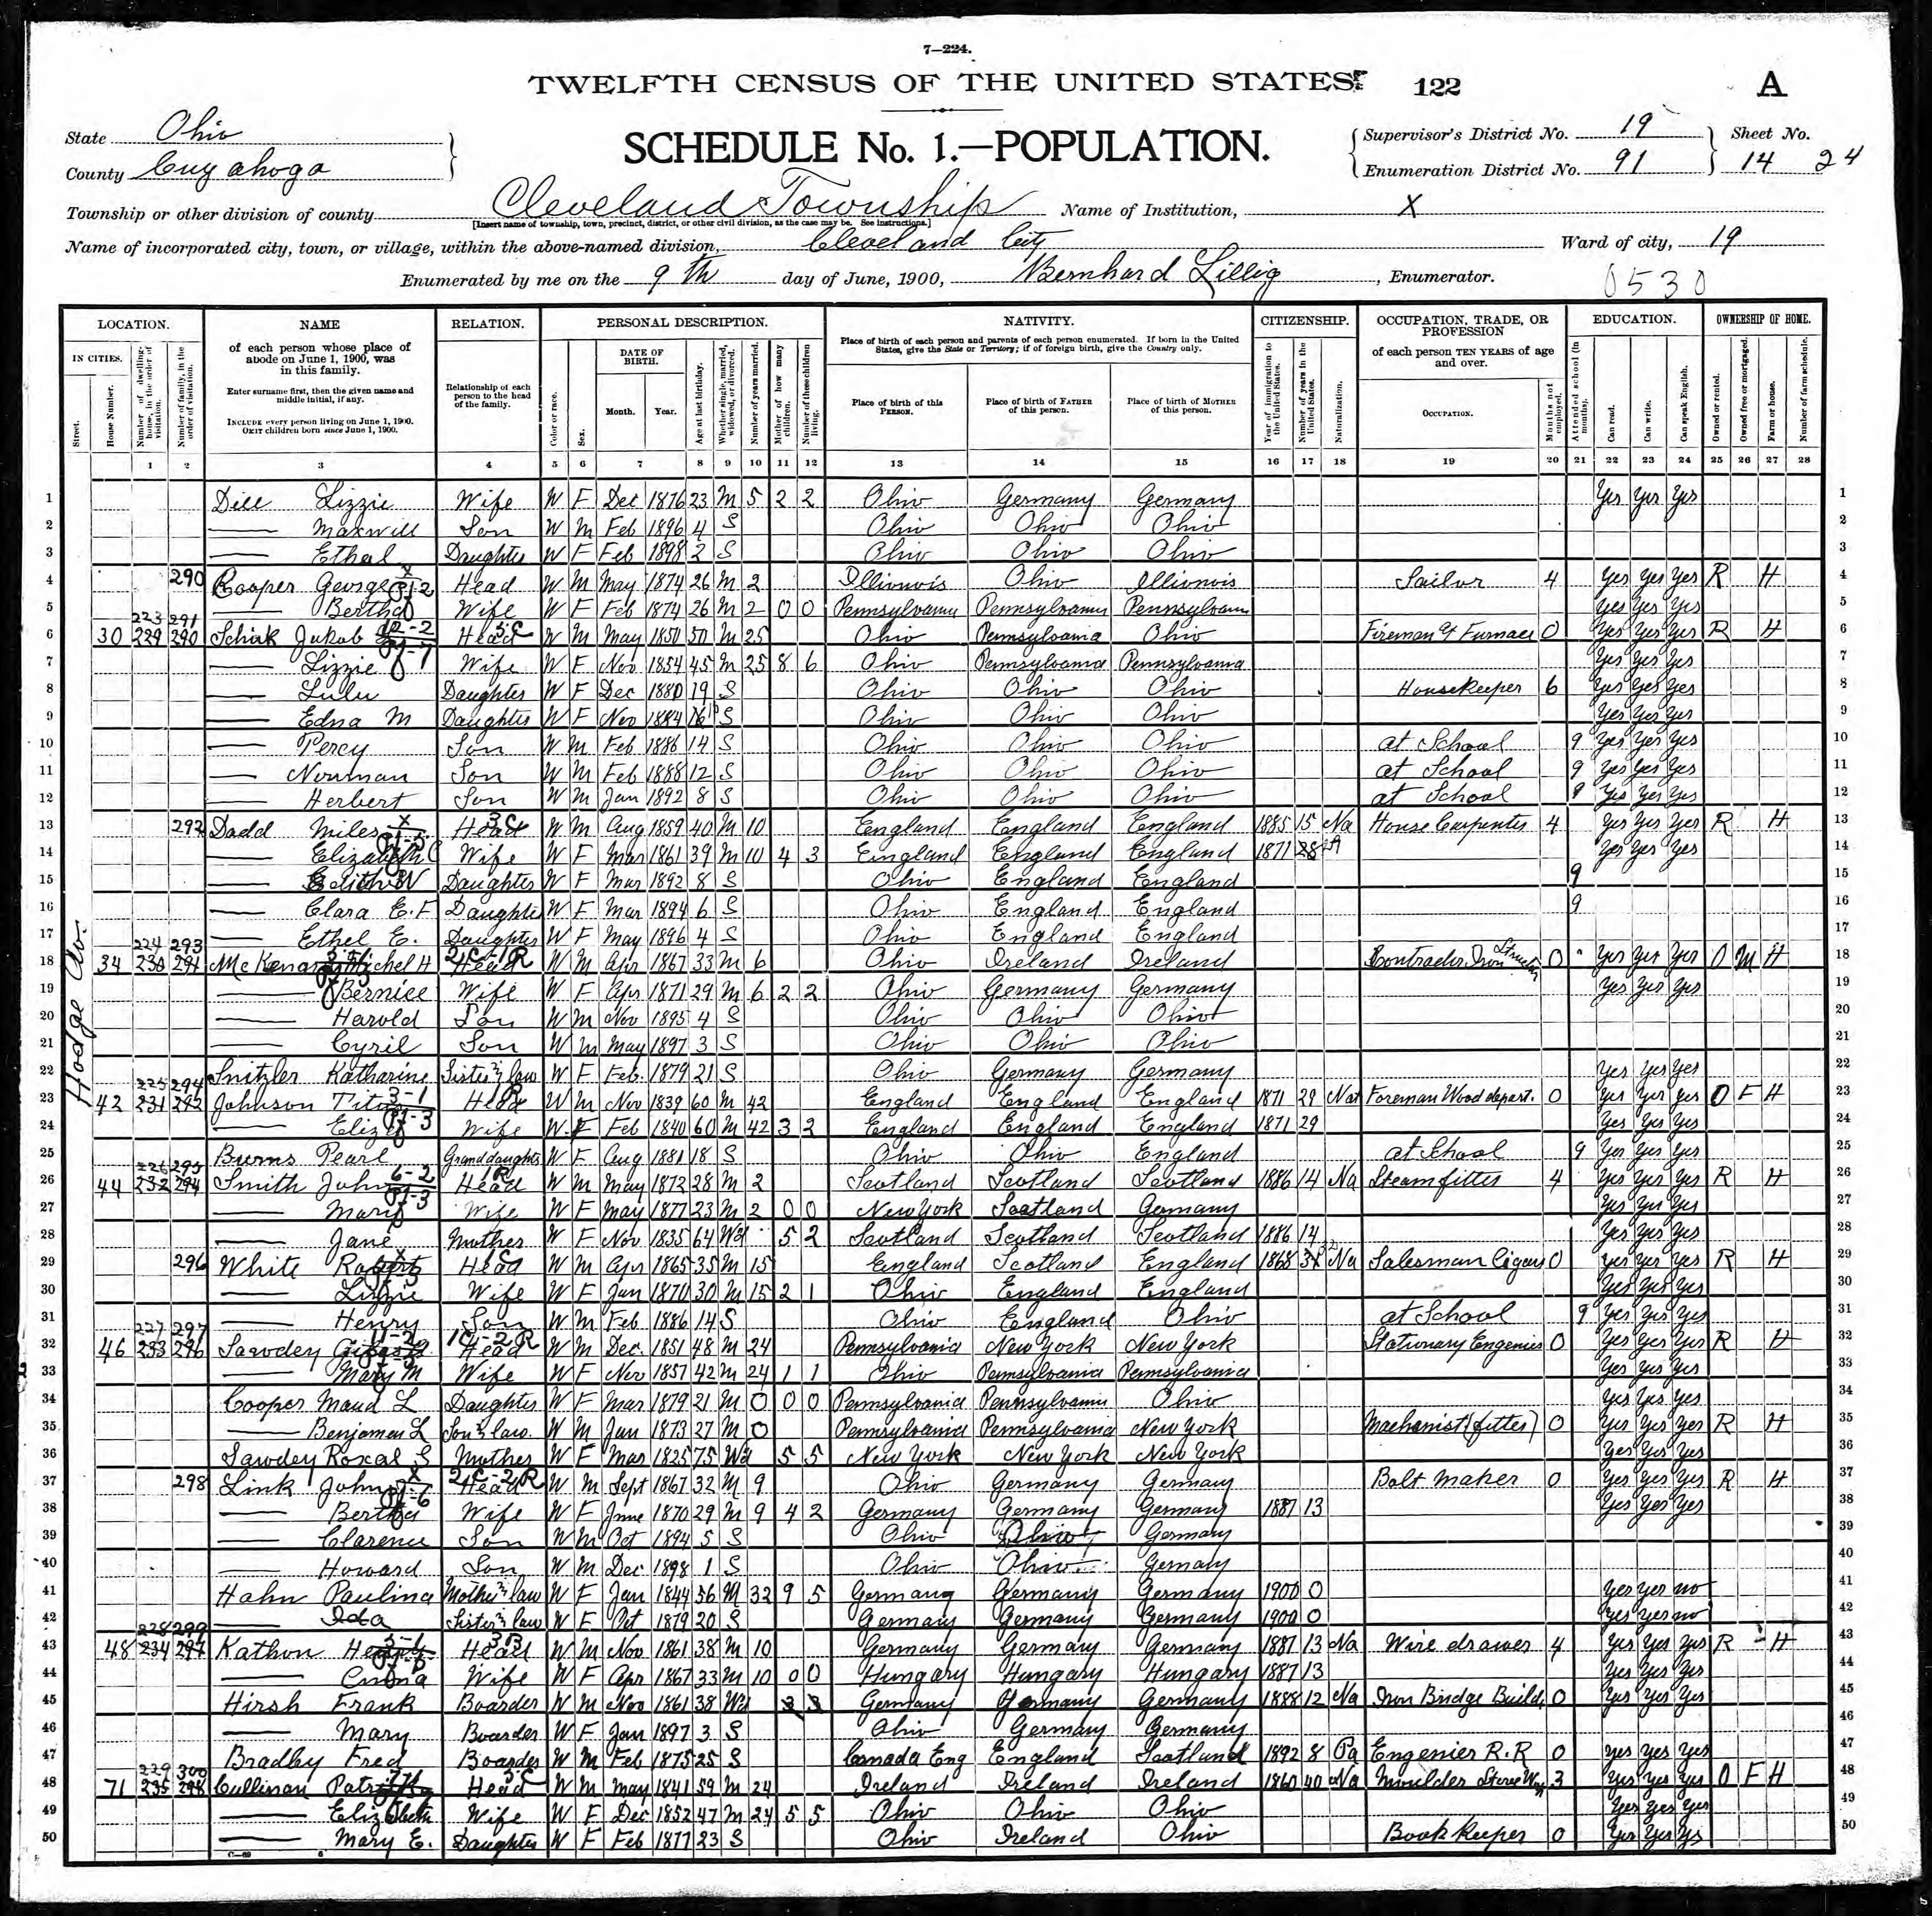 7—224.
TWELFTH CENSUS OF THE UNITED STATES.
122
A
State Ohio
County Cuyahoga
SCHEDULE No. 1.—POPULATION.
Supervisor's District No. 19
Enumeration District No. 91
Sheet No.
14 24
Township or other division of county Cleveland Township
[Insert name of township, town, precinct, district, or other civil division, as the case may be. See instructions.]
Name of Institution, X
Name of incorporated city, town, or village, within the above-named division, Cleveland City
Ward of city, 19
Enumerated by me on the 9th day of June, 1900, Bernhard Lillig, Enumerator.
0530
LOCATION. NAME RELATION. PERSONAL DESCRIPTION. NATIVITY. CITIZENSHIP. OCCUPATION, TRADE, OR PROFESSION EDUCATION. OWNERSHIP OF HOME.
IN CITIES.
Street.
House Number.
Number of dwelling-house, in the order of visitation.
Number of family, in the order of visitation.
of each person whose place of abode on June 1, 1900, was in this family.
Enter surname first, then the given name and middle initial, if any.
INCLUDE every person living on June 1, 1900.
OMIT children born since June 1, 1900.
Relationship of each person to the head of the family.
Color or race.
Sex.
DATE OF BIRTH.
Month. Year.
Age at last birthday.
Whether single, married, widowed, or divorced.
Number of years married.
Mother of how many children.
Number of these children living.
Place of birth of each person and parents of each person enumerated. If born in the United States, give the State or Territory; if of foreign birth, give the Country only.
Place of birth of this PERSON.
Place of birth of FATHER of this person.
Place of birth of MOTHER of this person.
Year of immigration to the United States.
Number of years in the United States.
Naturalization.
of each person TEN YEARS of age and over.
OCCUPATION.
Months not employed.
Attended school (in months).
Can read.
Can write.
Can speak English.
Owned or rented.
Owned free or mortgaged.
Farm or house.
Number of farm schedule.
1 2 3 4 5 6 7 8 9 10 11 12 13 14 15 16 17 18 19 20 21 22 23 24 25 26 27 28
Hodge Av.
1 Dill Lizzie Wife W F Dec 1876 23 M 5 2 2 Ohio Germany Germany Yes Yes Yes 1
2 — Maxwill Son W M Feb 1896 4 S Ohio Ohio Ohio 2
3 — Ethel Daughter W F Feb 1898 2 S Ohio Ohio Ohio 3
4 290 Cooper George Head W M May 1874 26 M 2 Illionois Ohio Illionois Sailor 4 Yes Yes Yes R H 4
5 — Bertha Wife W F Feb 1874 26 M 2 0 0 Pennsylvania Pennsylvania Pennsylvania Yes Yes Yes 5
223 291
6 30 229 290 Schirk Jakob Head W M May 1850 50 M 25 Ohio Pennsylvania Ohio Fireman of Furnace 0 Yes Yes Yes R H 6
7 — Lizzie Wife W F Nov 1854 45 M 25 8 6 Ohio Pennsylvania Pennsylvania Yes Yes Yes 7
8 — Lulu Daughter W F Dec 1880 19 S Ohio Ohio Ohio Housekeeper 6 Yes Yes Yes 8
9 — Edna M Daughter W F Nov 1884 S Ohio Ohio Ohio Yes Yes Yes 9
10 — Percy Son W M Feb 1886 14 S Ohio Ohio Ohio at School 9 Yes Yes Yes 10
11 — Norman Son W M Feb 1888 12 S Ohio Ohio Ohio at School 9 Yes Yes Yes 11
12 — Herbert Son W M Jan 1892 8 S Ohio Ohio Ohio at School 9 Yes Yes Yes 12
13 292 Dadd Miles Head W M Aug 1859 40 M 10 England England England 1885 15 Na House Carpenter 4 Yes Yes Yes R H 13
14 — Elizabeth C Wife W F Mar 1861 39 M 10 4 3 Eingland England England 1871 28 Yes Yes Yes 14
15 — Edith W Daughter W F Mar 1892 8 S Ohio England England 9 15
16 — Clara E. F Daughter W F Mar 1894 6 S Ohio England England 9 16
17 — Ethel E. Daughter W F May 1896 4 S Ohio England England 17
224 293
18 34 230 291 Michel H Head W M Apr 1867 33 M 6 Ohio Ireland Ireland Contractor Iron Structur 0 Yes Yes Yes O M H 18
19 — Bernice Wife W F Apr 1871 29 M 6 2 2 Ohio Germany Germany Yes Yes Yes 19
20 — Harold Son W M Nov 1895 4 S Ohio Ohio Ohio 20
21 — Cyril Son W M May 1897 3 S Ohio Ohio Ohio 21
22 Snitzler Katharine Sister in law W F Feb. 1879 21 S Ohio Germany Germany Yes Yes Yes 22
225 294
23 42 231 292 Johnson Titus Head W M Nov 1839 60 M 42 England England England 1871 29 Nat Foreman Wood depart. 0 Yes Yes Yes O F H 23
24 — Eliza Wife W F Feb 1840 60 M 42 3 2 England England England 1871 29 Yes Yes Yes 24
25 Burns Pearl Grand daughter W F Aug 1881 18 S Ohio Ohio England at School 9 Yes Yes Yes 25
226 295
26 44 232 294 Smith John Head W M May 1872 28 M 2 Scotland Scotland Scotland 1886 14 Na Steamfitter 4 Yes Yes Yes R H 26
27 — Mary Wife W F May 1877 23 M 2 0 0 New York Scotland Germany Yes Yes Yes 27
28 — Jane Mother W F Nov 1835 64 Wd 5 2 Scotland Scotland Scotland 1886 14 Yes Yes Yes 28
29 296 White Robert Head W M Apr 1865 35 M 15 England Scotland England 1868 Na Salesman Cigars 0 Yes Yes Yes R H 29
30 — Lizzie Wife W F Jan 1870 30 M 15 2 1 Ohio England England Yes Yes Yes 30
31 — Henry Son W M Feb 1886 14 S Ohio England Ohio at School 9 Yes Yes Yes 31
227 297
32 46 233 296 Sawdey Head W M Dec. 1851 48 M 24 Pennsylvania New York New York Stationary Engenier 0 Yes Yes Yes R H 32
33 — Mary M Wife W F Nov 1857 42 M 24 1 1 Ohio Pennsylvania Pennsylvania Yes Yes Yes 33
34 Cooper Maud L Daughter W F Mar 1879 21 M 0 0 0 Pennsylvania Pennsylvania Ohio Yes Yes Yes 34
35 — Benjamen L Son in law. W M Jan 1873 27 M 0 Pennsylvania Pennsylvania New York Machanist (fitter) 0 Yes Yes Yes R H 35
36 Sawdey Roxal S Mother W F Mar 1825 75 Wd 5 5 New York New York New York Yes Yes Yes 36
37 298 Link John Head W M Sept 1867 32 M 9 Ohio Germany Germany Bolt Maker 0 Yes Yes Yes R H 37
38 — Bertha Wife W F June 1870 29 M 9 4 2 Germany Germany Germany 1887 13 Yes Yes Yes 38
39 — Clarence Son W M Oct 1894 5 S Ohio Ohio Germany 39
40 — Howard Son W M Dec 1898 1 S Ohio Ohio Gemany 40
41 Hahn Paulina Mother in law W F Jan 1844 56 M 32 9 5 Germany Germany Germany 1900 0 Yes Yes no 41
42 — Ida Sister in law W F Oct 1879 20 S Germany Germany Germany 1900 0 Yes Yes no 42
228 299
43 48 234 297 Kathon Head W M Nov 1861 38 M 10 Germany Germany Germany 1887 13 Na Wire drawer 4 Yes Yes Yes R H 43
44 — Wife W F Apr 1867 33 M 10 0 0 Hungary Hungary Hungary 1887 13 Yes Yes Yes 44
45 Hirsh Frank Boarder W M Nov 1861 38 Wd 3 3 Germany Germany Germany 1888 12 Na Iron Bridge Build 0 Yes Yes Yes 45
46 — Mary Boarder W F Jan 1897 3 S Ohio Germany Germany 46
47 Bradley Fred Boarder W M Feb 1875 25 S Canada Eng England Scotland 1892 8 Pa Engenier R.R 0 Yes Yes Yes 47
229 300
48 71 235 298 Cullinan Patrick Head W M May 1841 59 M 24 Ireland Ireland Ireland 1860 40 Na Moulder 3 Yes Yes Yes O F H 48
49 — Elizabeth Wife W F Dec 1852 47 M 24 5 5 Ohio Ohio Ohio Yes Yes Yes 49
50 — Mary E. Daughter W F Feb 1877 23 S Ohio Ireland Ohio Book keeper 0 Yes Yes Yes 50